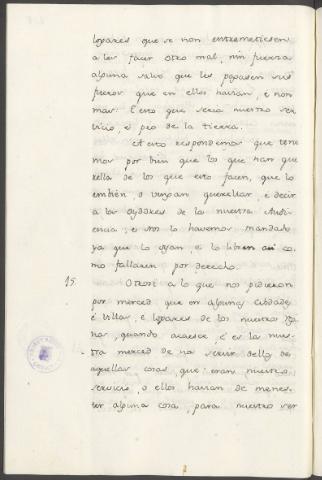 logares que se non entremetiesen
a les facer otro mal, nin fuerza
alguna salvo que les pagasen sus
fueros que en ellos havian, e non
mas: E esto que seria nuestro ser
vicio, e pro de la tierra.
A esto respondemos que tene
mos por bien que los que han que
rella de los que esto facen, que lo
embién, o vengan querellar, e decir
a los oydores de la nuestra Audi
encia; e Nos lo havemos mandado
ya que lo oyan, e lo libren asi co
mo fallaren por derecho.
15 Otrosi a lo que nos pidieron
por merced que en algunas cibdades
e villas, e logares de los nuestros Rg
nos, quando acaesce, e es la nues
tra merced de nos servir dellos de
aquellas cosas, que eran nuestro
servicio, o ellos havian de menes
ter alguna cosa, para nuestro ser